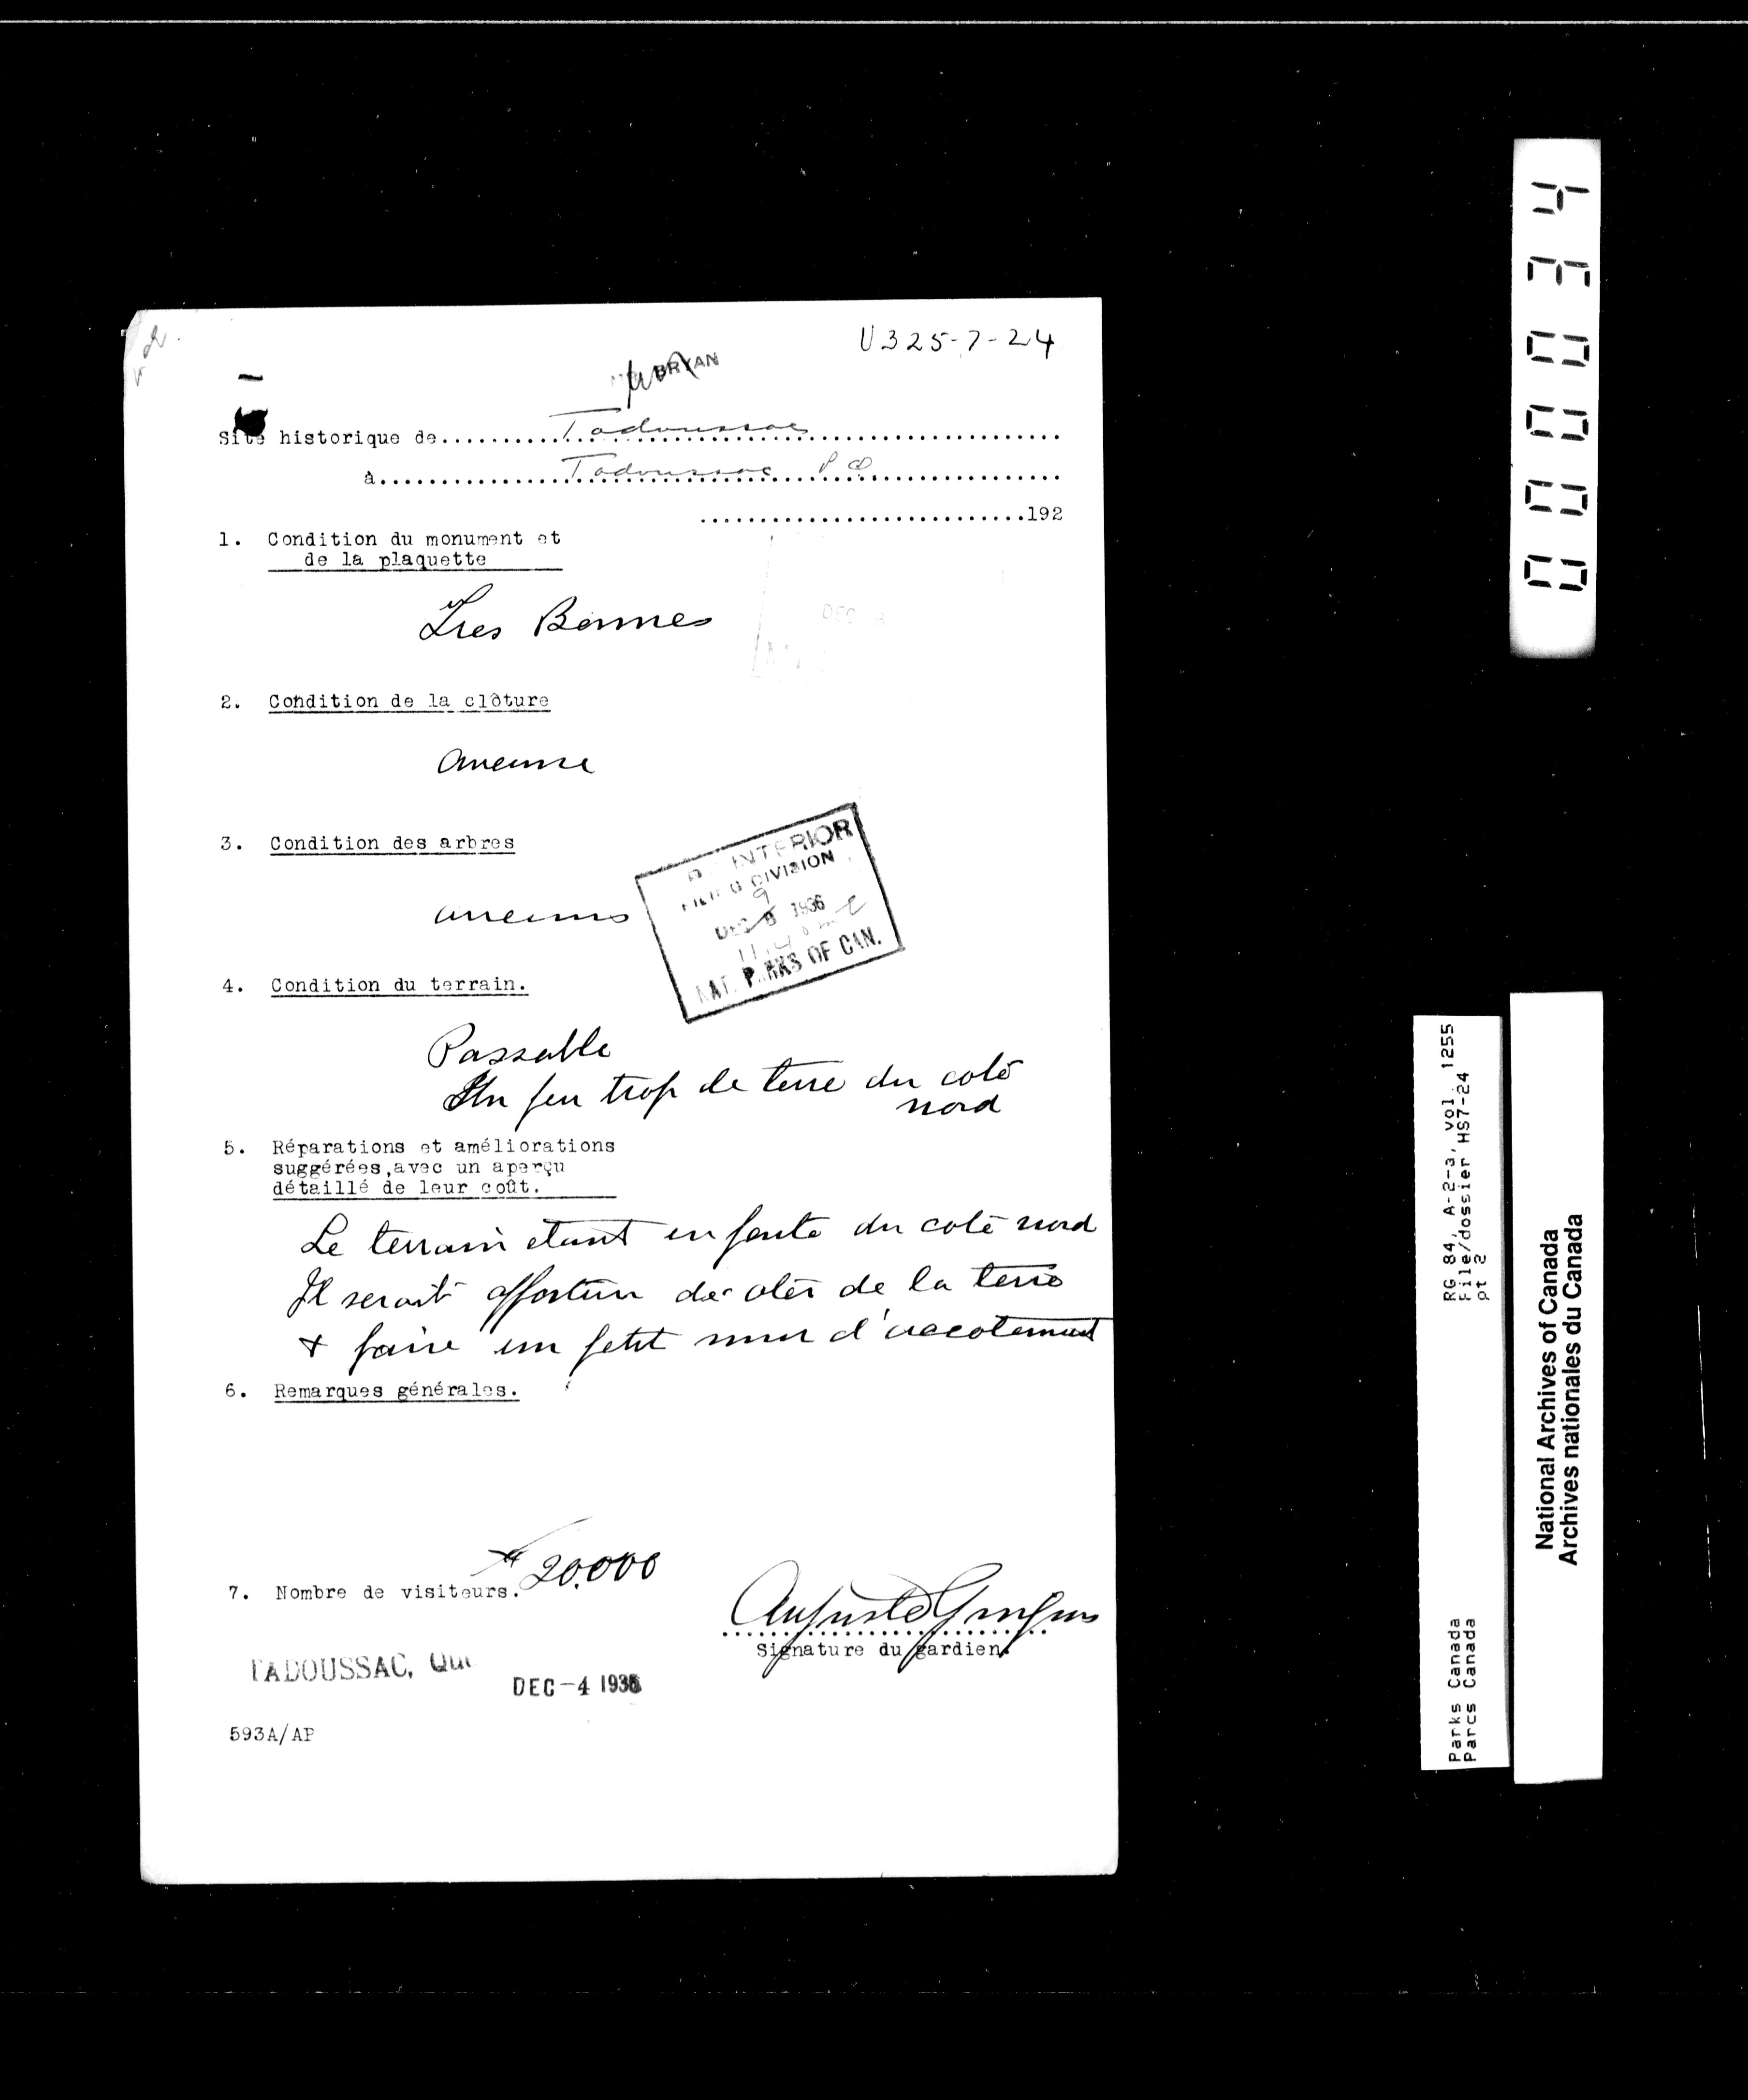 U325-7-24
BRYAN
Site historique de Tadoussac
à Tadoussac P Q
192
1. Condition du monument et
de la plaquette
Tres Bonnes
DEC
2. Condition de la clôture
Aucune
3. Condition des arbres
aucuns
INTERIOR
DIVISION
9
DEC 8 1936
NAT. PARKS OF CAN.
4. Condition du terrain.
Passable
Un peu trop de terre du coté
nord
5. Réparations et améliorations
suggérées, avec un aperçu
détaillé de leur coût.
Le terrain etant en pente du coté nord
Il serait opportun de oter de la terre
+ faire un petit mur d'
6. Remarques générales.
7. Nombre de visiteurs. 20.000
Auguste
Signature du gardien.
TADOUSSAC, Que
DEC -4 1936
593A/AP
000034
RG 84, A-2-a, vol. 1255
File/dossier HS7-24
pt 2
Parks Canada
Parcs Canada
National Archives of Canada
Archives nationales du Canada